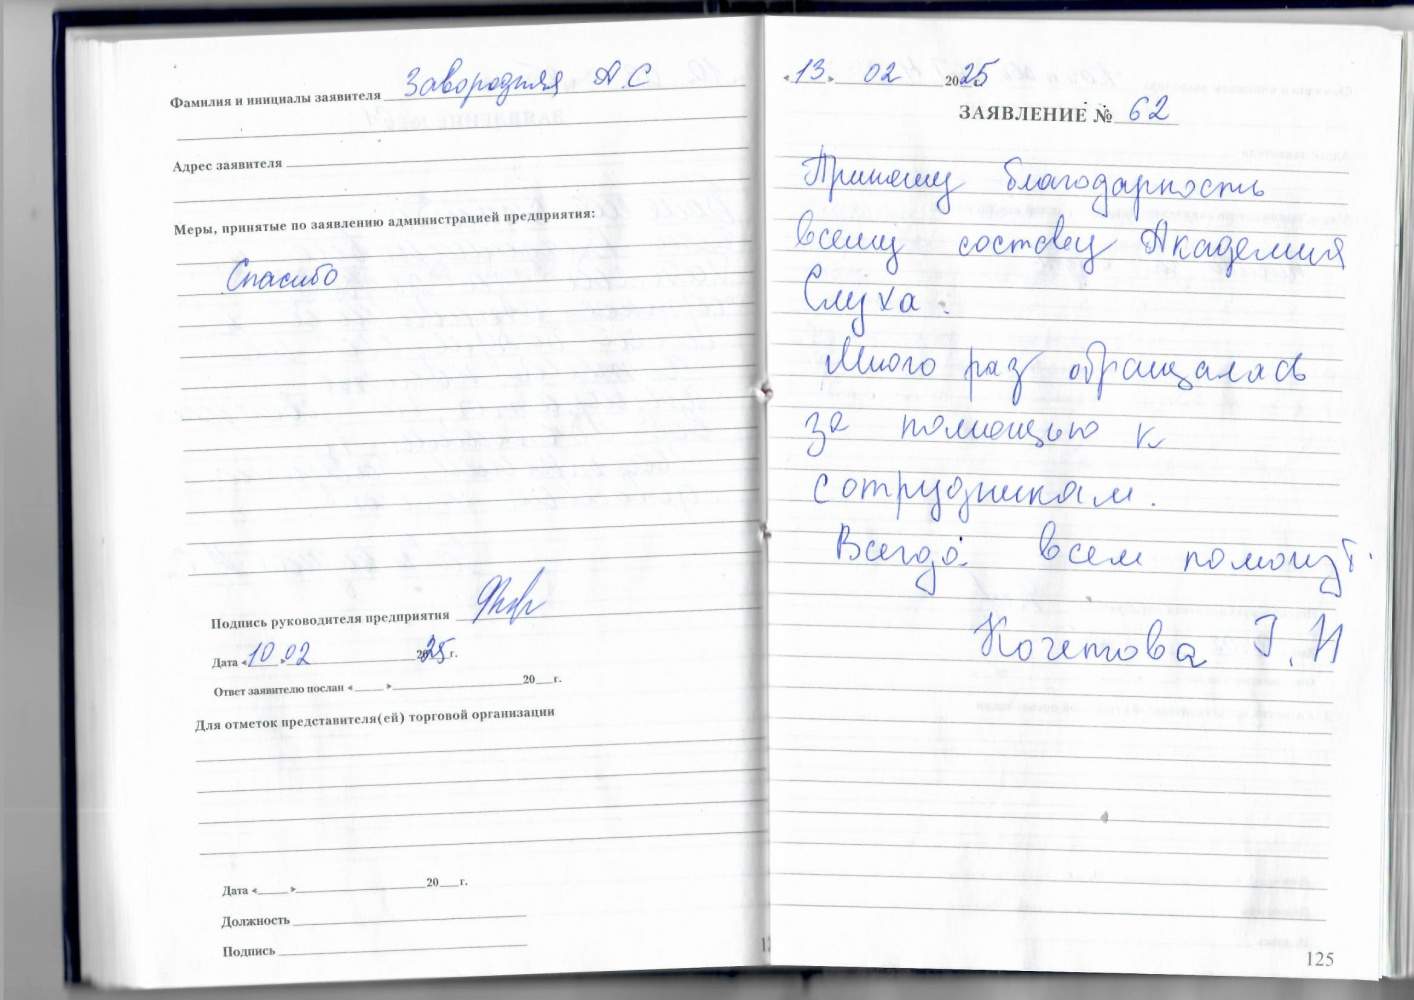 Фамилия и инициалы заявителя Завородняя А.С
Адрес заявителя
Меры, принятые по заявлению администрацией предприятия:
Спасибо
Подпись руководителя предприятия
Дата «10 » 02 2025 г.
Ответ заявителю послан « » 20 г.
Для отметок представителя(ей) торговой организации
Дата « » 20 г.
Должность
Подпись
«13» 02 2025
ЗАЯВЛЕНИЕ № 62
Приношу благодарность
всему составу Академия
Слуха.
Много раз обращалась
за помощью к
сотрудникам.
Всегда всем помогут.
Кочетова Г. Н
125